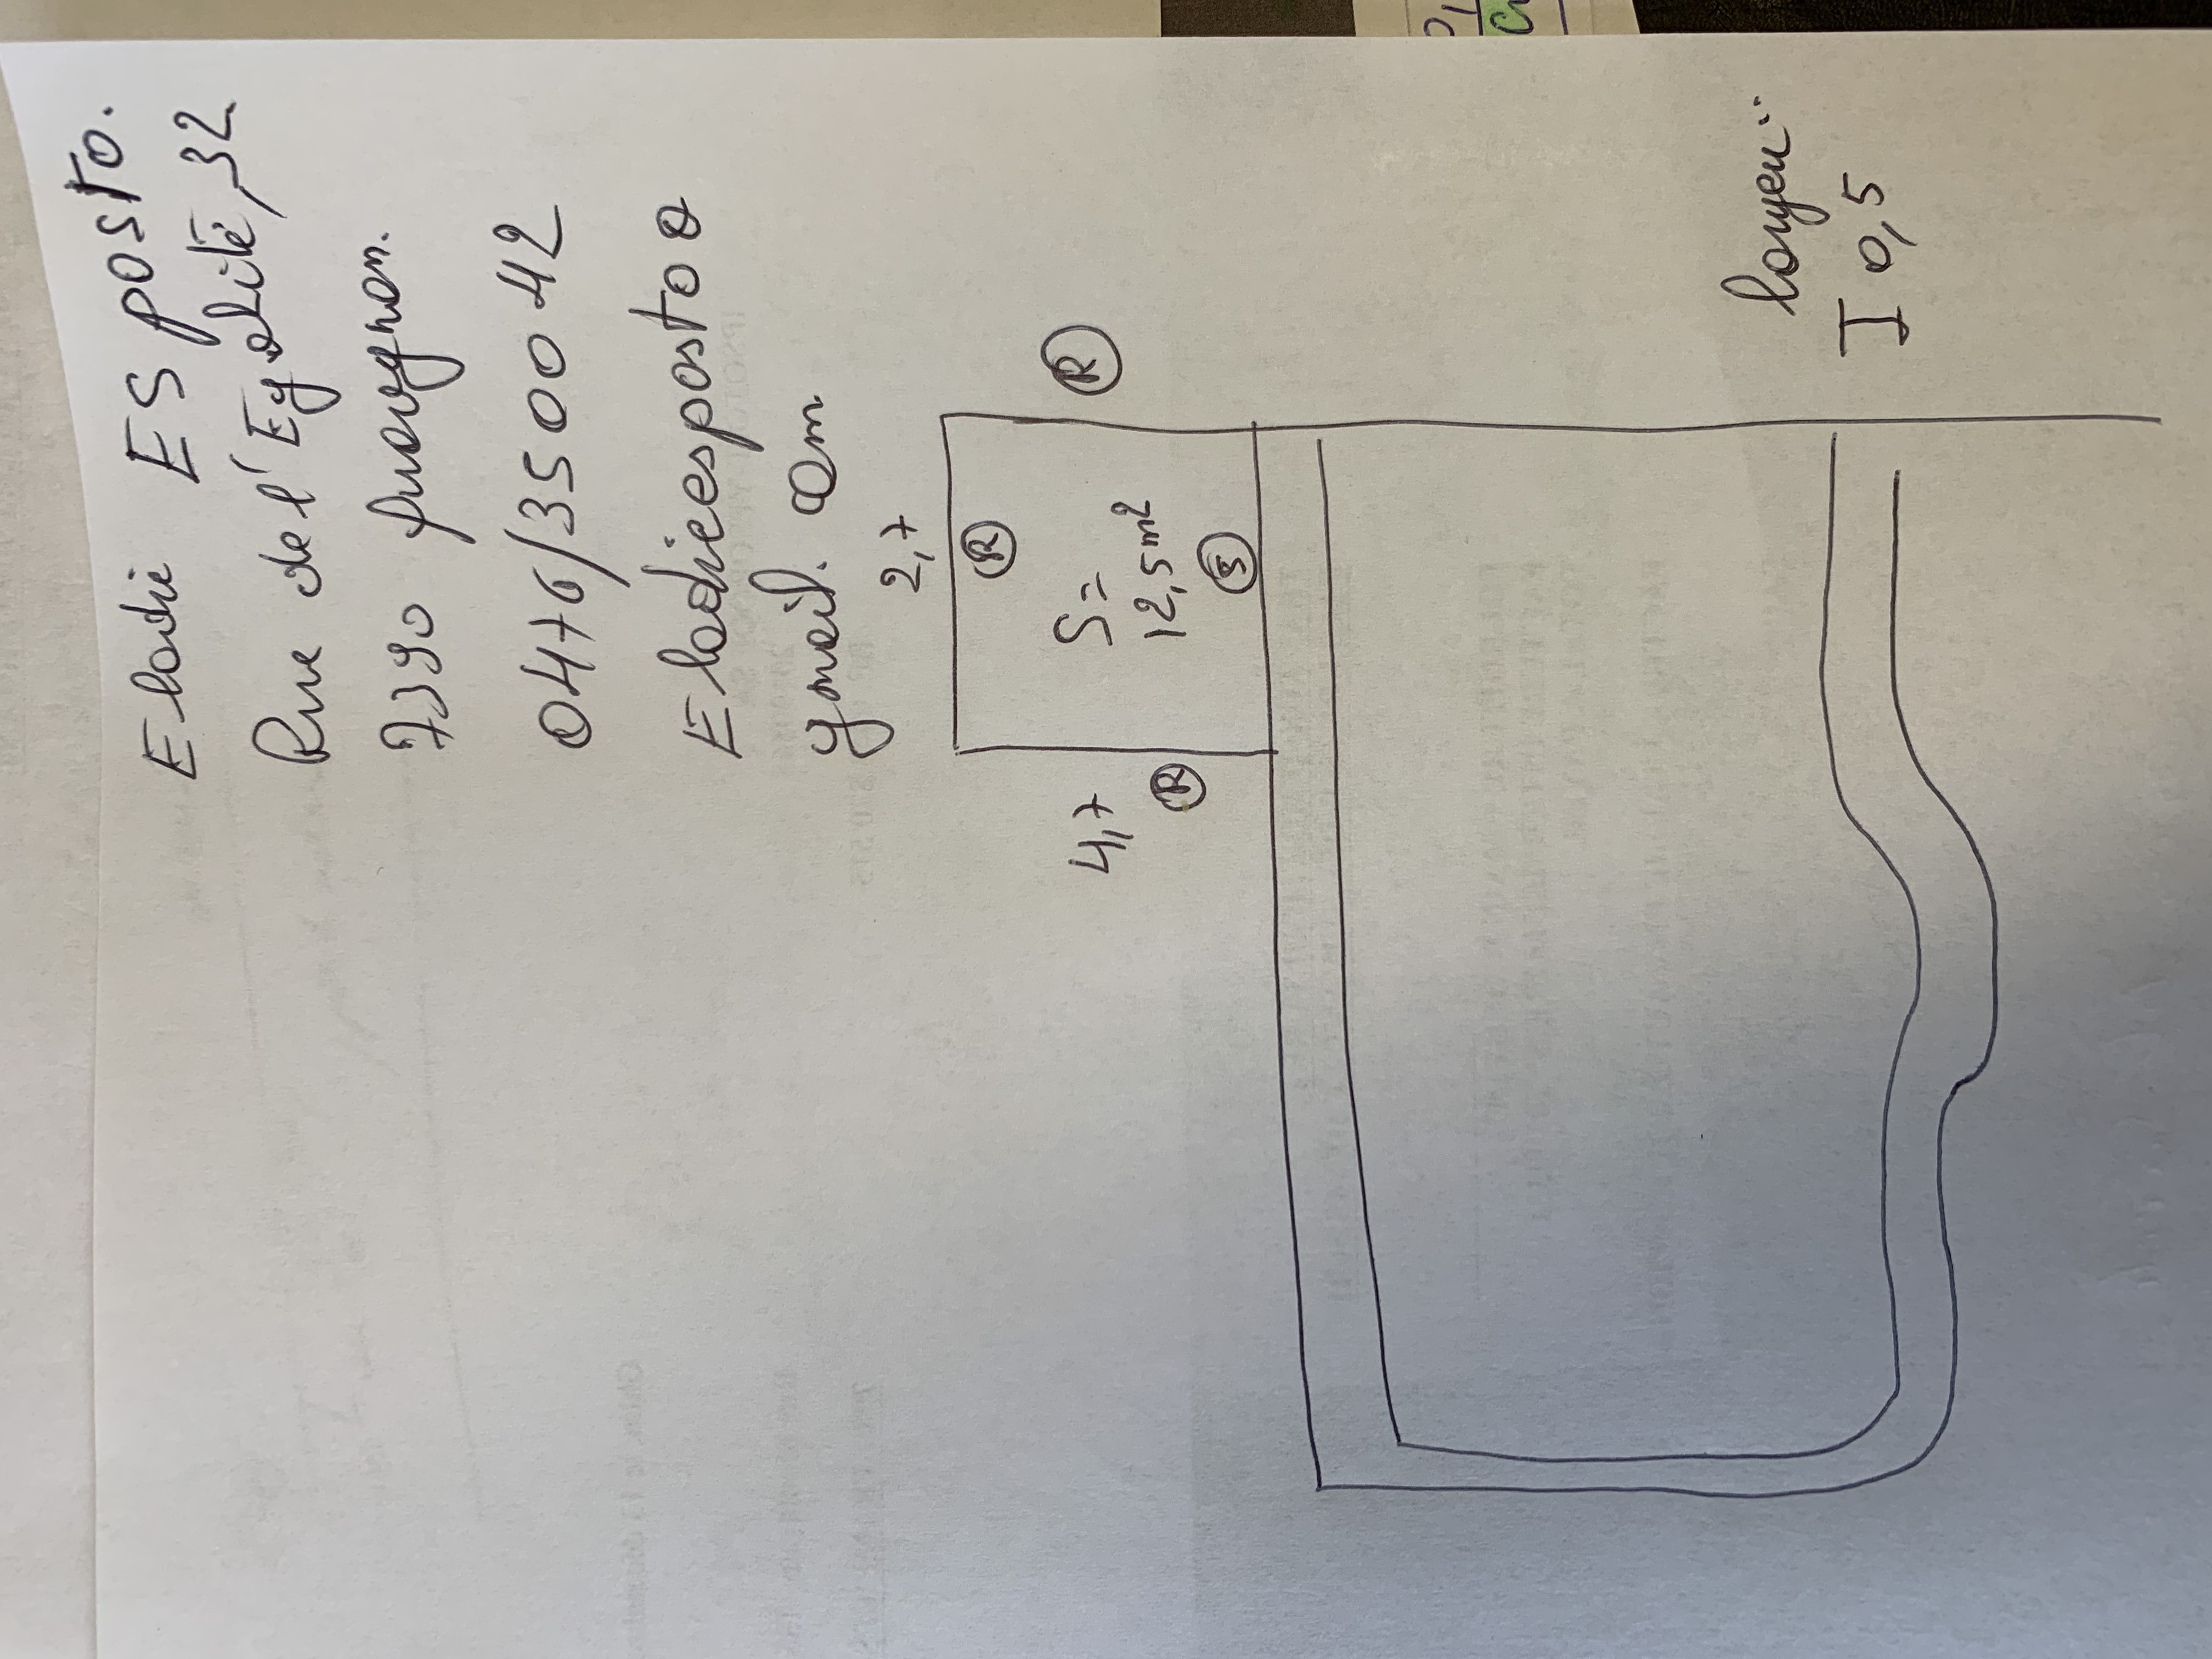 Elodie ESposto.
Rue de l'Egalité, 32
7390 quaregnon.
0476/35 00 42
Elodieesposto @
gmail. com
2,7
R
R
S=
12,5 m²
4,7
R
S
I 0,5